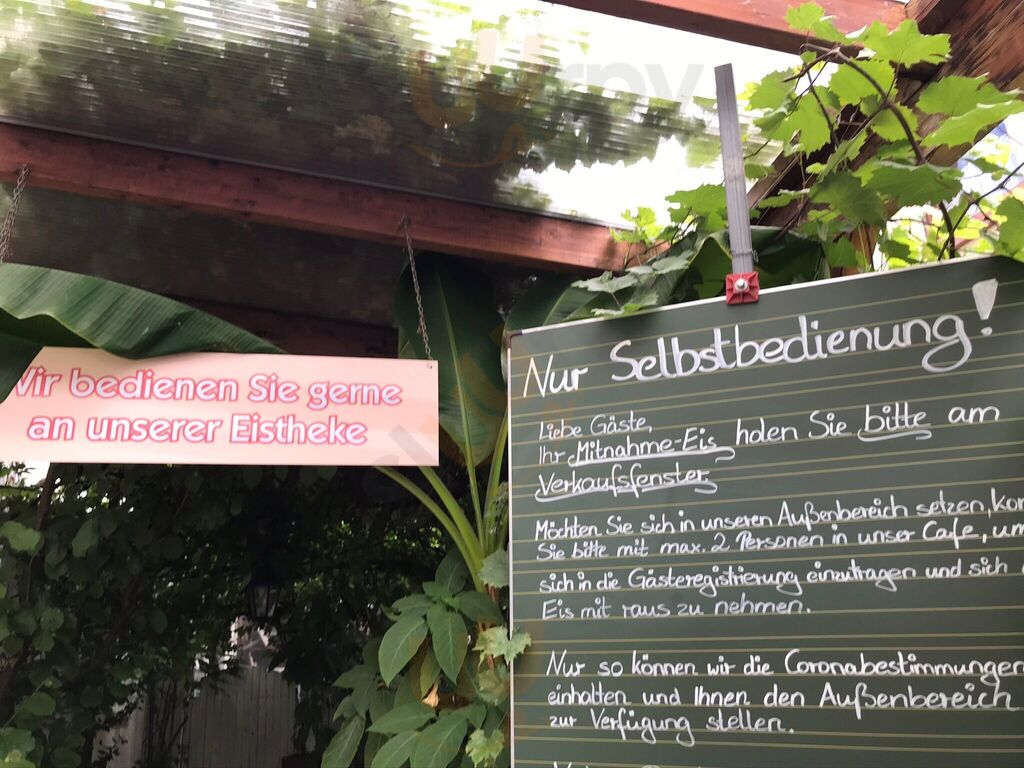 Wir bedienen Sie gerne
an unserer Eistheke
Nur Selbstbedienung!
Liebe Gäste,
Ihr Mitnahme-Eis holen Sie bitte am
Verkaufsfenster
Möchten Sie sich in unseren Außenbereich setzen,
Sie bitte mit max. 2 Personen in unser Cafe, um
sich in die Gästeregistrierung einzutragen und sich
Eis mit raus zu nehmen.
Nur so können wir die Coronabestimmungen
einhalten und Ihnen den Außenbereich
zur Verfügung stellen.